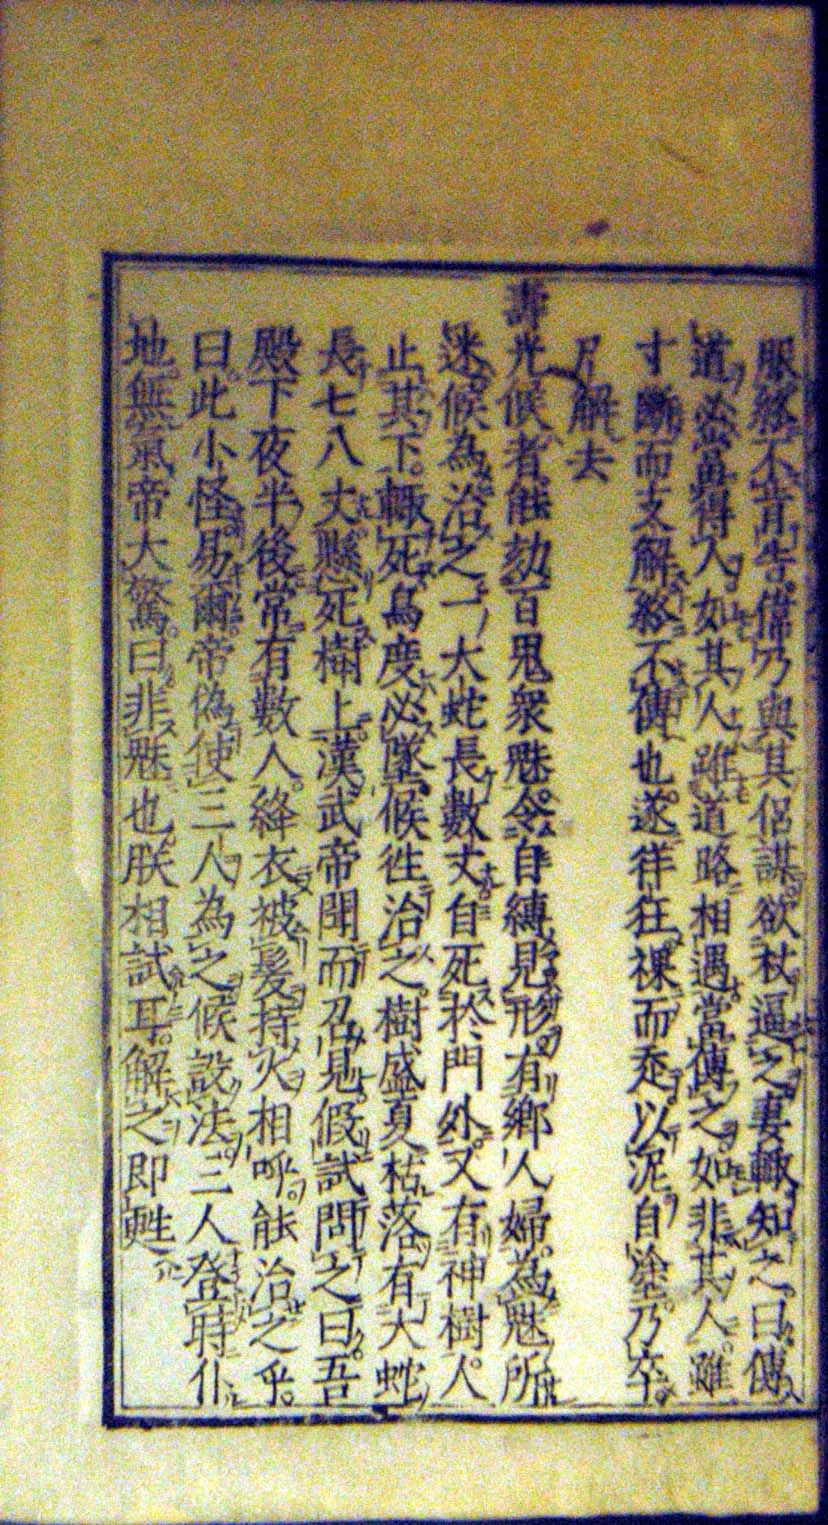 服終不肯告偉乃與其侶謀欲杖逼之妻輙知之曰傳
道必當得人如其人雖道路相遇當傳之如非其人雖
寸斷而支解終不傳也遂徉狂裸而走以泥自塗乃卒
尸解去
壽光候者能劾百鬼衆魅令自縛見形有鄉人婦為魅所
迷候為治之一大蛇長數丈自死於門外又有神樹人
止其下輙死鳥度必墜候徃治之樹盛夏枯落有大蛇
長七八丈懸死樹上漢武帝聞而召見假試問之曰吾
殿下夜半後常有數人絳衣被髪持火相呼能治之乎
曰此小怪易爾帝偽使三人為之候設法三人登時仆
地無氣帝大驚曰非魅也朕相試耳解之即甦